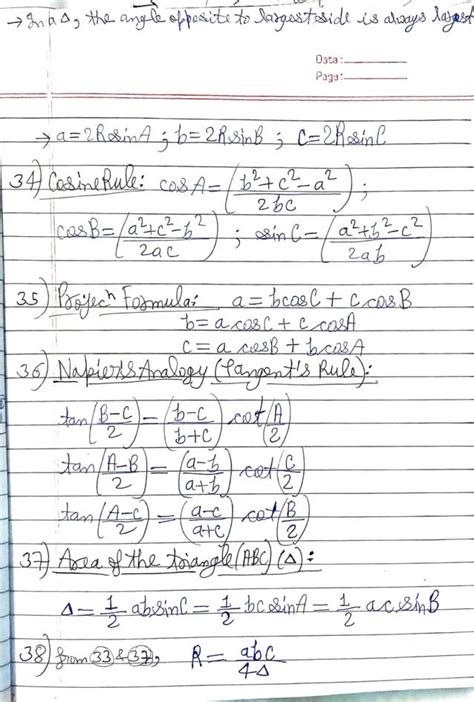 → In a Δ, the angle opposite to largest side is always largest
Date:
Page:
→ a=2RsinA ; b=2RsinB ; c=2RsinC
34) Cosine Rule: cosA = (b²+c²-a² / 2bc) ;
cosB = (a²+c²-b² / 2ac) ; sinC = (a²+b²-c² / 2ab)
35) Projecⁿ Formula: a = bcosC + c cosB
b = a cosC + c cosA
c = a cosB + bcosA
36) Napier's Analogy (Tangent's Rule):
tan(B-C / 2) = (b-c / b+c) cot(A / 2)
tan(A-B / 2) = (a-b / a+b) cot(C / 2)
tan(A-C / 2) = (a-c / a+c) cot(B / 2)
37) Area of the triangle (ABC) (Δ) :
Δ = 1/2 absinC = 1/2 bcsinA = 1/2 acsinB
38) from (33) & (37), R = abc / 4Δ